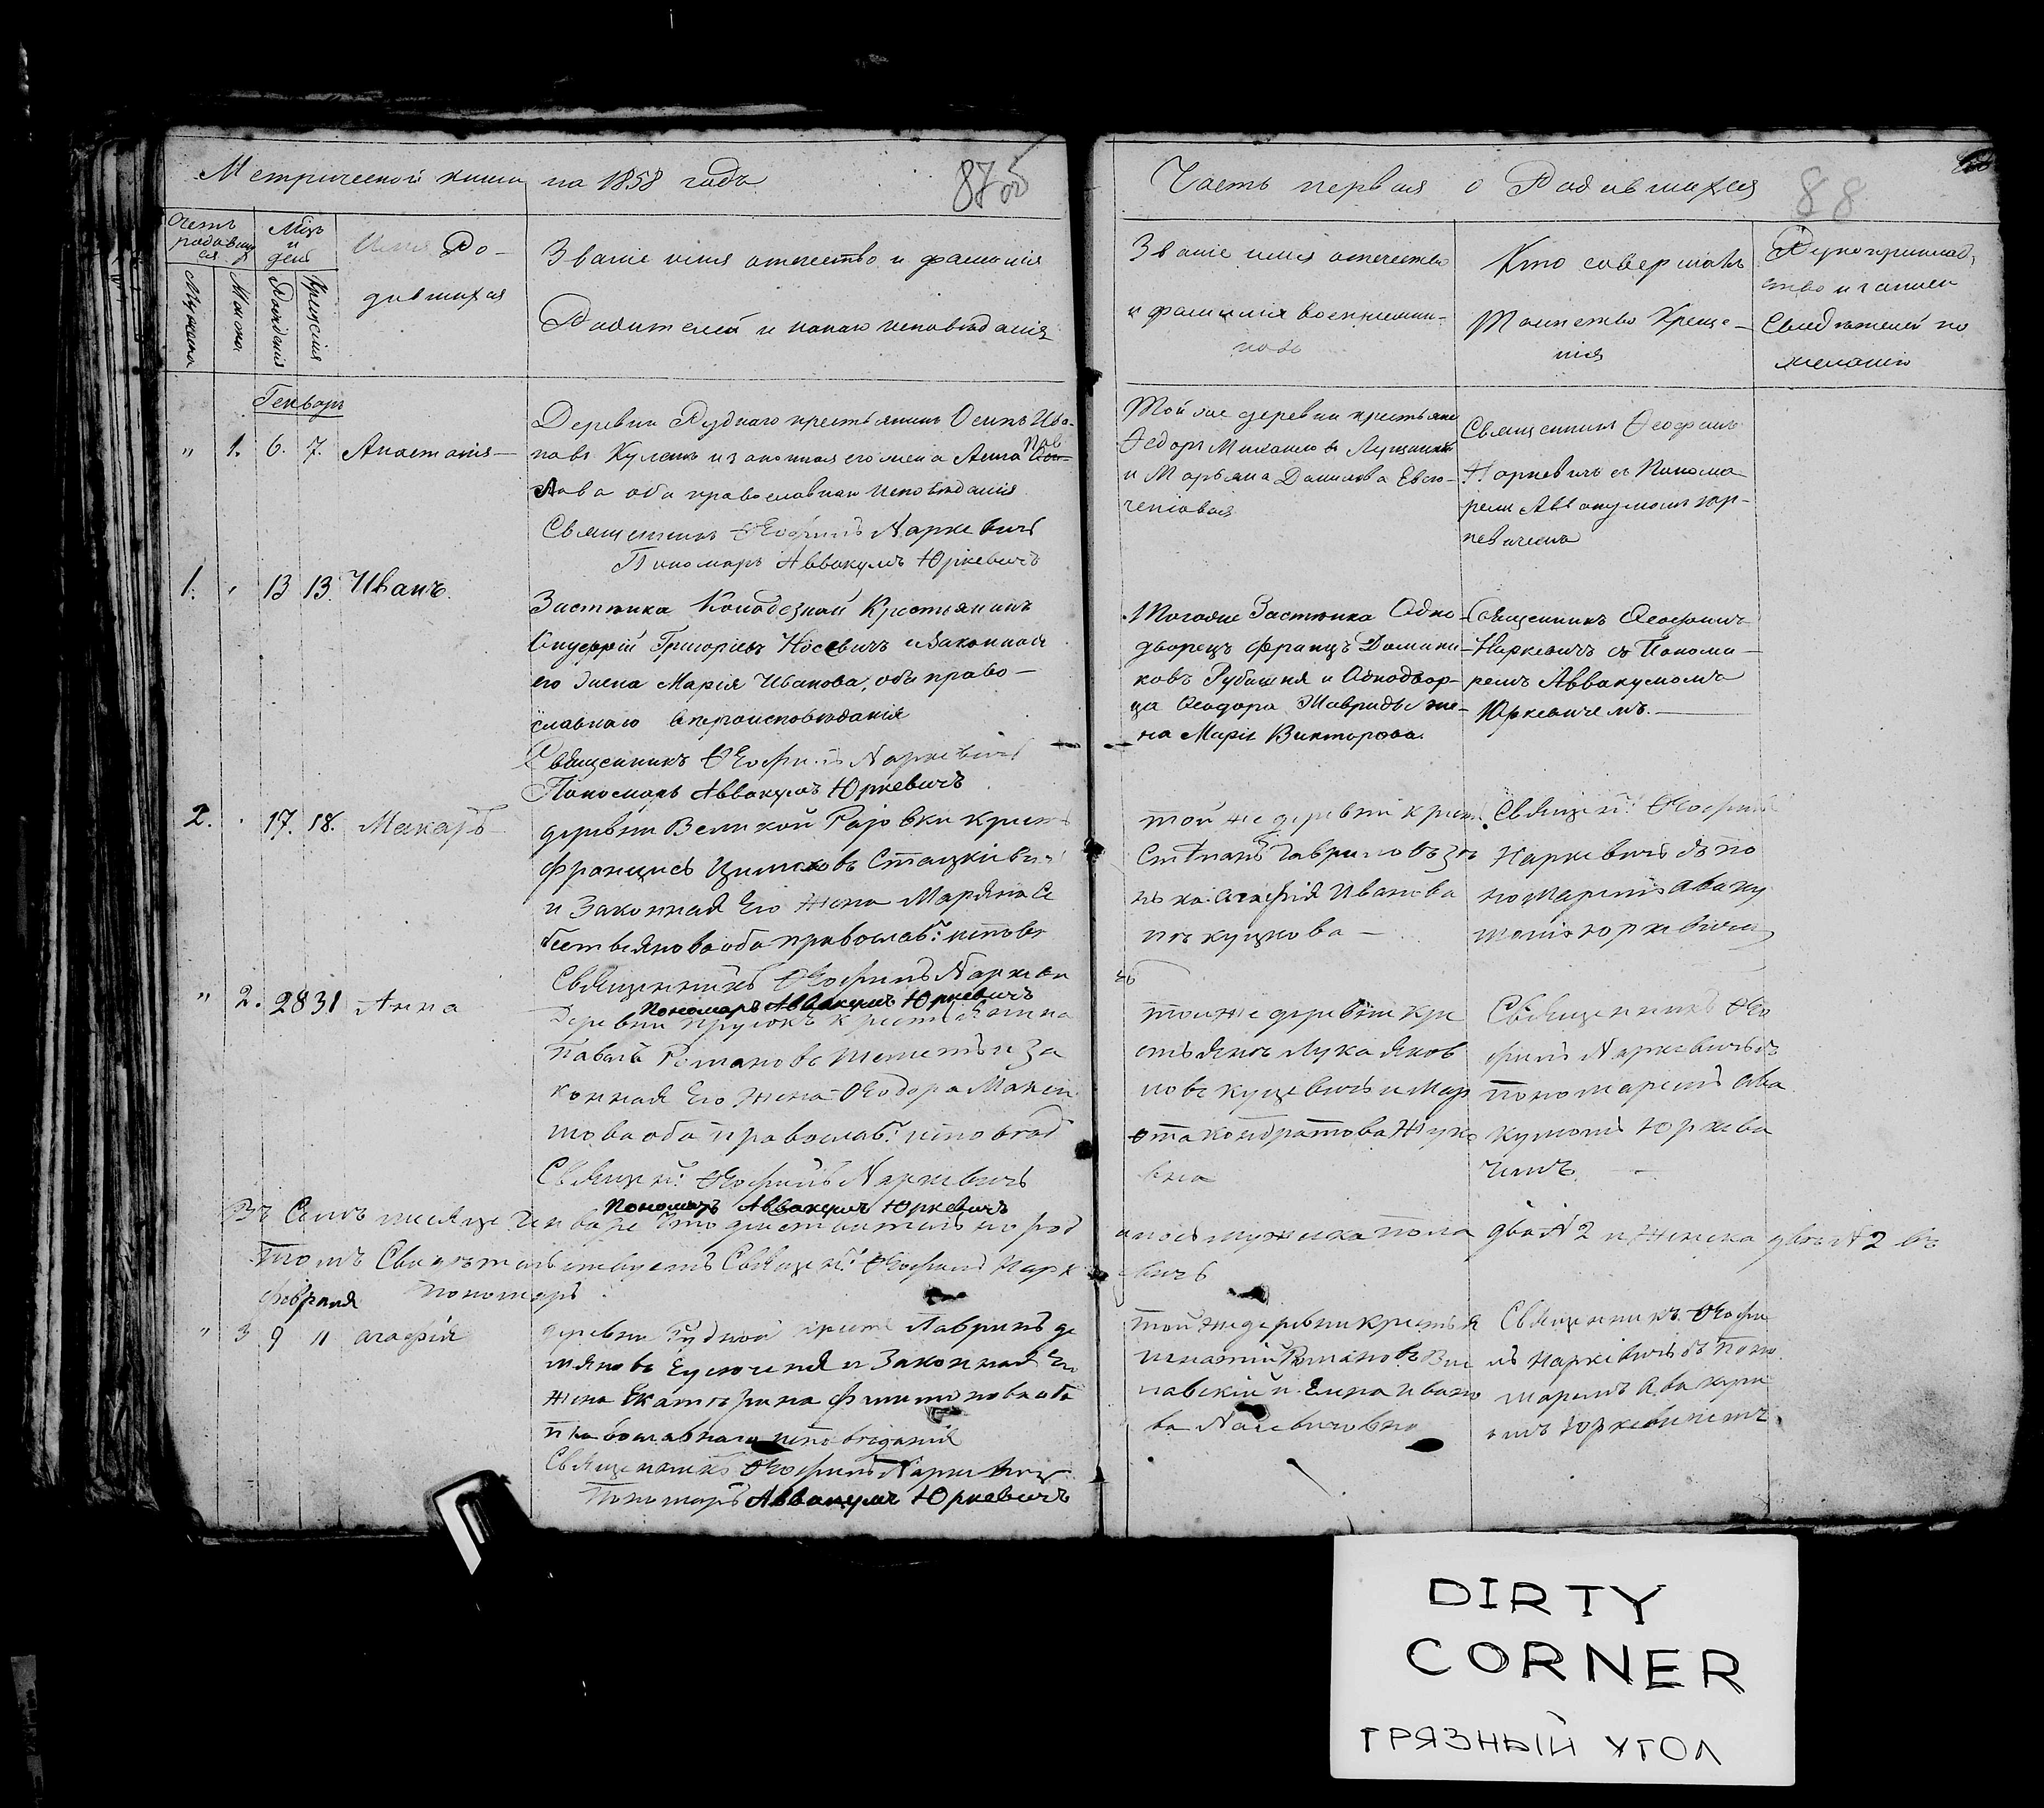 Метрической книги на 1858 годъ
87 об
Часть первая о Родившихся
88
Счетъ родившихся
Мужеска
Женска
Мѣц и день
Рожденія
Крещенія
Имя Ро-
дившихся
Званіе имя отчество и фамилія
Родителей и какаго исповѣданія
Званіе имя отчество
и фамилія воспріемни-
ковъ
Кто совершалъ
Таинство Креще-
нія
Рукоприклад
ство
Свидѣтелей по
желанію
Генварь
" 1. 6. 7. Анастасія
Деревни Руднаго крестьянинъ Осипъ Ива-
новъ и законная его жена Анна Пав
лова оба православнаго исповѣданія
Священникъ Ѳеофилъ Наркевичъ
Пономарь Аввакумъ Юркевичъ
Той же деревни крестьяне
Ѳедоръ
и Марьяна Данилова
Священникъ Ѳеофилъ
Наркевичъ съ Понома
ремъ Аввакумомъ Юр-
кевичемъ
1. " 13 13. Иванъ.
Застѣнка Крестьянинъ
Онуфрій Григорьевъ Носевичъ и законная
его жена Марія Иванова, оба право-
славнаго вѣроисповѣданія
Священникъ Ѳеофилъ Наркевичъ
Пономарь Аввакумъ Юркевичъ
Тогоже Застѣнка Одно-
дворецъ Францъ Домини-
ковъ и Однодвор-
ца Ѳеодора же-
на Марія Викторова.
Священникъ Ѳеофилъ
Наркевичъ съ Понома-
ремъ Аввакумомъ
Юркевичемъ.
2. " 17. 18. Макаръ
деревни Великой Раіовки крест
Францисъ
и Законная Его жена Марьяна Се
бестьянова оба православ: исповѣ
Священникъ Ѳеофилъ Наркеви
Пономарь Аввакумъ Юркевичъ
той же деревни крест
Стѣпанъ Гавриловъ
Агафія Иванова
Священ: Ѳеофилъ
Наркевичъ съ по
номаремъ Аваку
момъ Юркевичем
" 2. 28 31 Анна
Деревни крестьянинъ
Павелъ Романовъ и за
конная Его жена Ѳеодора
оба православ: исповѣд
Священ: Ѳеофилъ Наркевичъ
Пономарь Аввакумъ Юркевичъ
тоиже деревни кре
стьянинъ Лука Яков
Кондратова
Священникъ Ѳео
филъ Наркевичъ съ
пономаремъ Ава
кумомъ Юркеви
чемъ
Въ Семъ месяце Генваре что действительно род
илось мужеска пола два № 2 и женска двѣ № 2 въ
томъ Свидѣтельствуетъ Священ: Ѳеофилъ Нарк
евичъ
Февраля
Пономарь
" 3 9 11 Агафія
деревни Рудной крест Лавринъ де
мяновъ и Законная Его
жена Екатерина Филипповна оба
православнаго исповѣданія
Священникъ Ѳеофилъ Наркевичъ
Пономарь Аввакумъ Юркевичъ
той же деревни крестья
Игнатій Романовъ
и Елена Ивано
ва
Священникъ Ѳеофи
лъ Наркевичъ съ Поно
маремъ Авакум
омъ Юркевичемъ
DIRTY
CORNER
ГРЯЗНЫЙ УГОЛ